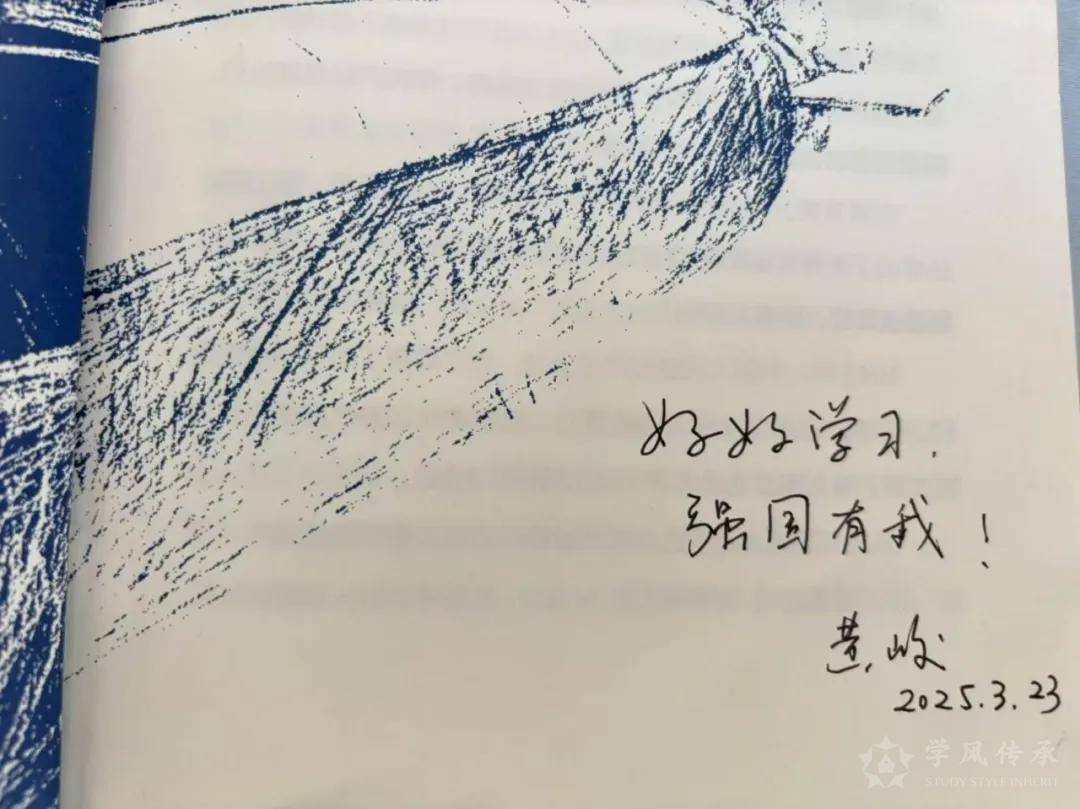 好好学习,
强国有我!
黄峻
2025.3.23
学风传承
STUDY STYLE INHERIT